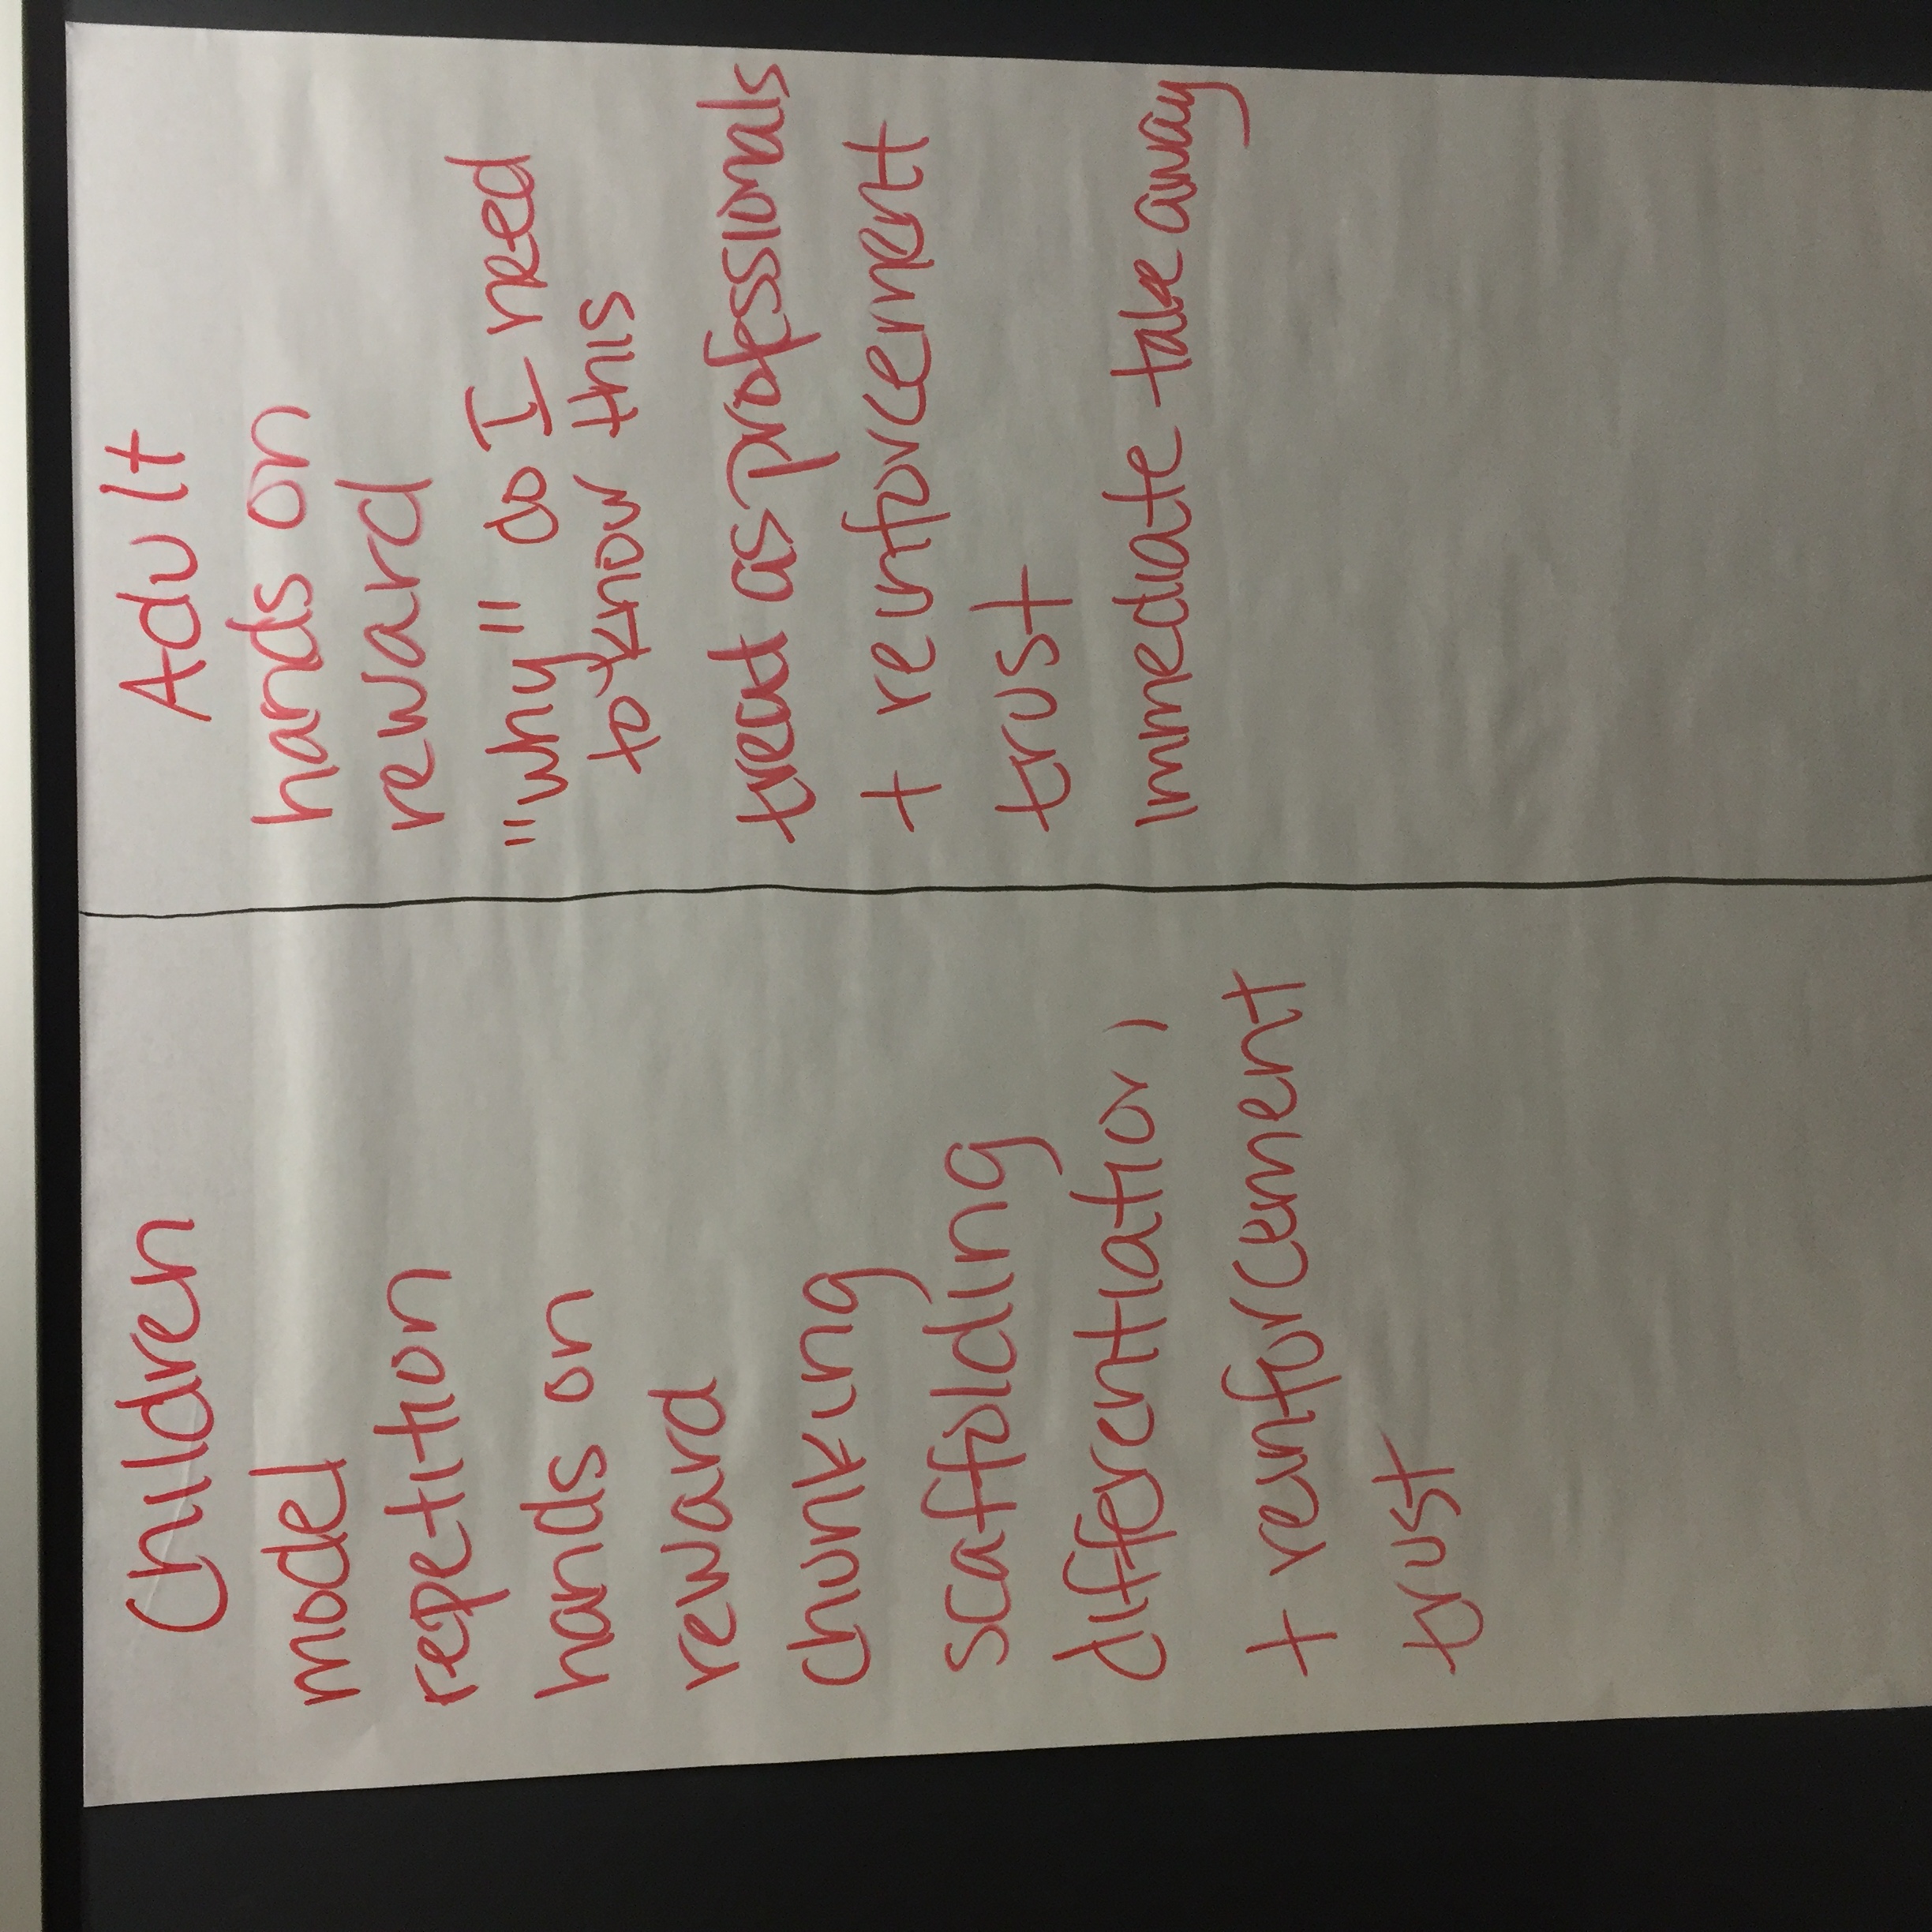 Children
model
repetition
hands on
reward
chunking
scaffolding
differentiation
+ reinforcement
trust
Adult
hands on
reward
"why" do I need
to know this
treat as professionals
+ reinforcement
trust
immediate take away